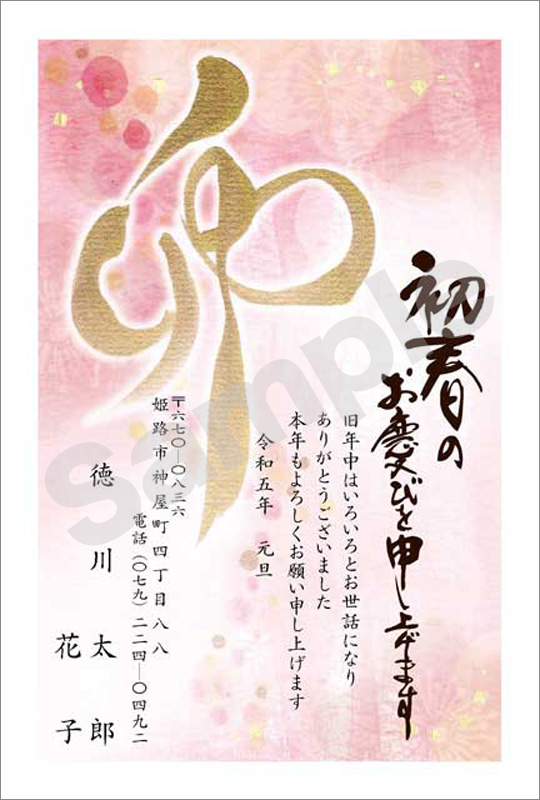 卯
初春の
お慶びを申し上げます
旧年中はいろいろとお世話になり
ありがとうございました
本年もよろしくお願い申し上げます
令和五年　元旦
〒六七〇―〇八三六
姫路市神屋町四丁目八八
電話（〇七九）二二四―〇四九二
徳川　太郎
花子
sample